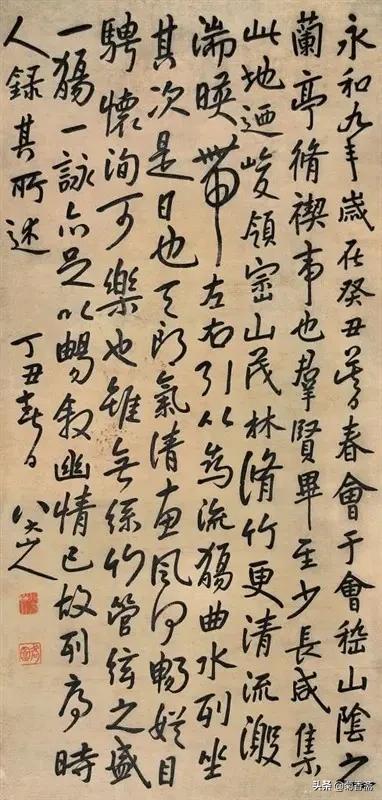 永和九年歲在癸丑暮春會于會稽山陰之
蘭亭脩禊事也羣賢畢至少長咸集
此地迺峻領崈山茂林脩竹更清流激
湍暎帶左右引以為流觴曲水列坐
其次是日也天朗氣清惠風和暢娛目
騁懷洵可樂也雖無絲竹管絃之盛
一觴一詠亦足以暢敘幽情已故列序時
人錄其所述
丁丑春日
八大山人
头条 @菊香斋